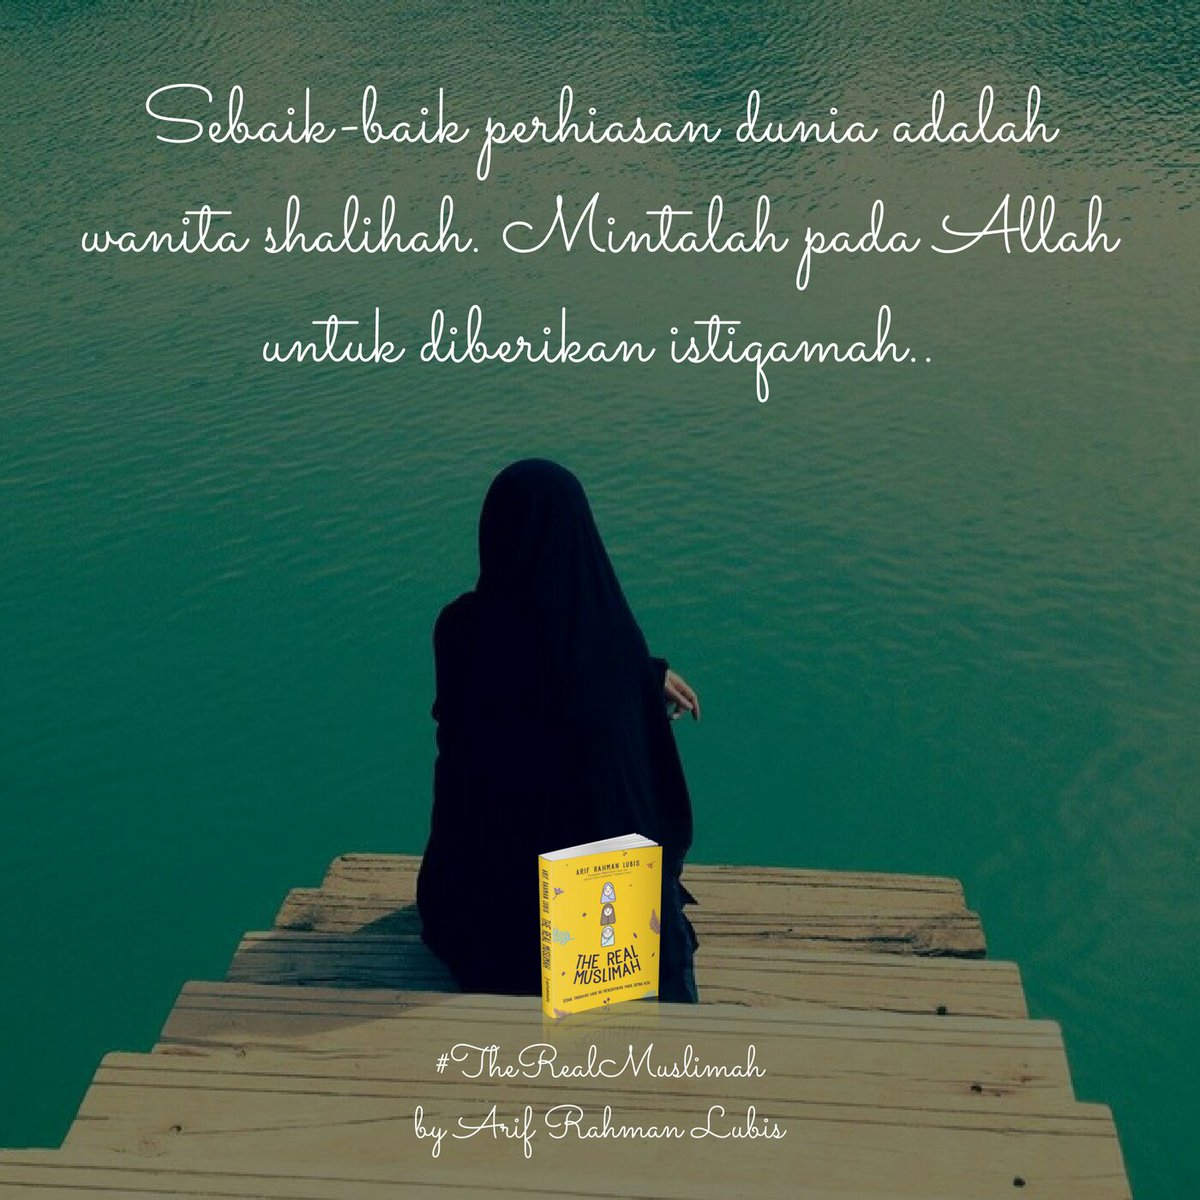 Sebaik-baik perhiasan dunia adalah
wanita shalihah. Mintalah pada Allah
untuk diberikan istiqamah..
ARIF RAHMAN LUBIS
THE REAL
MUSLIMAH
ARIF RAHMAN LUBIS THE REAL MUSLIMAH
#TheRealMuslimah
by Arif Rahman Lubis